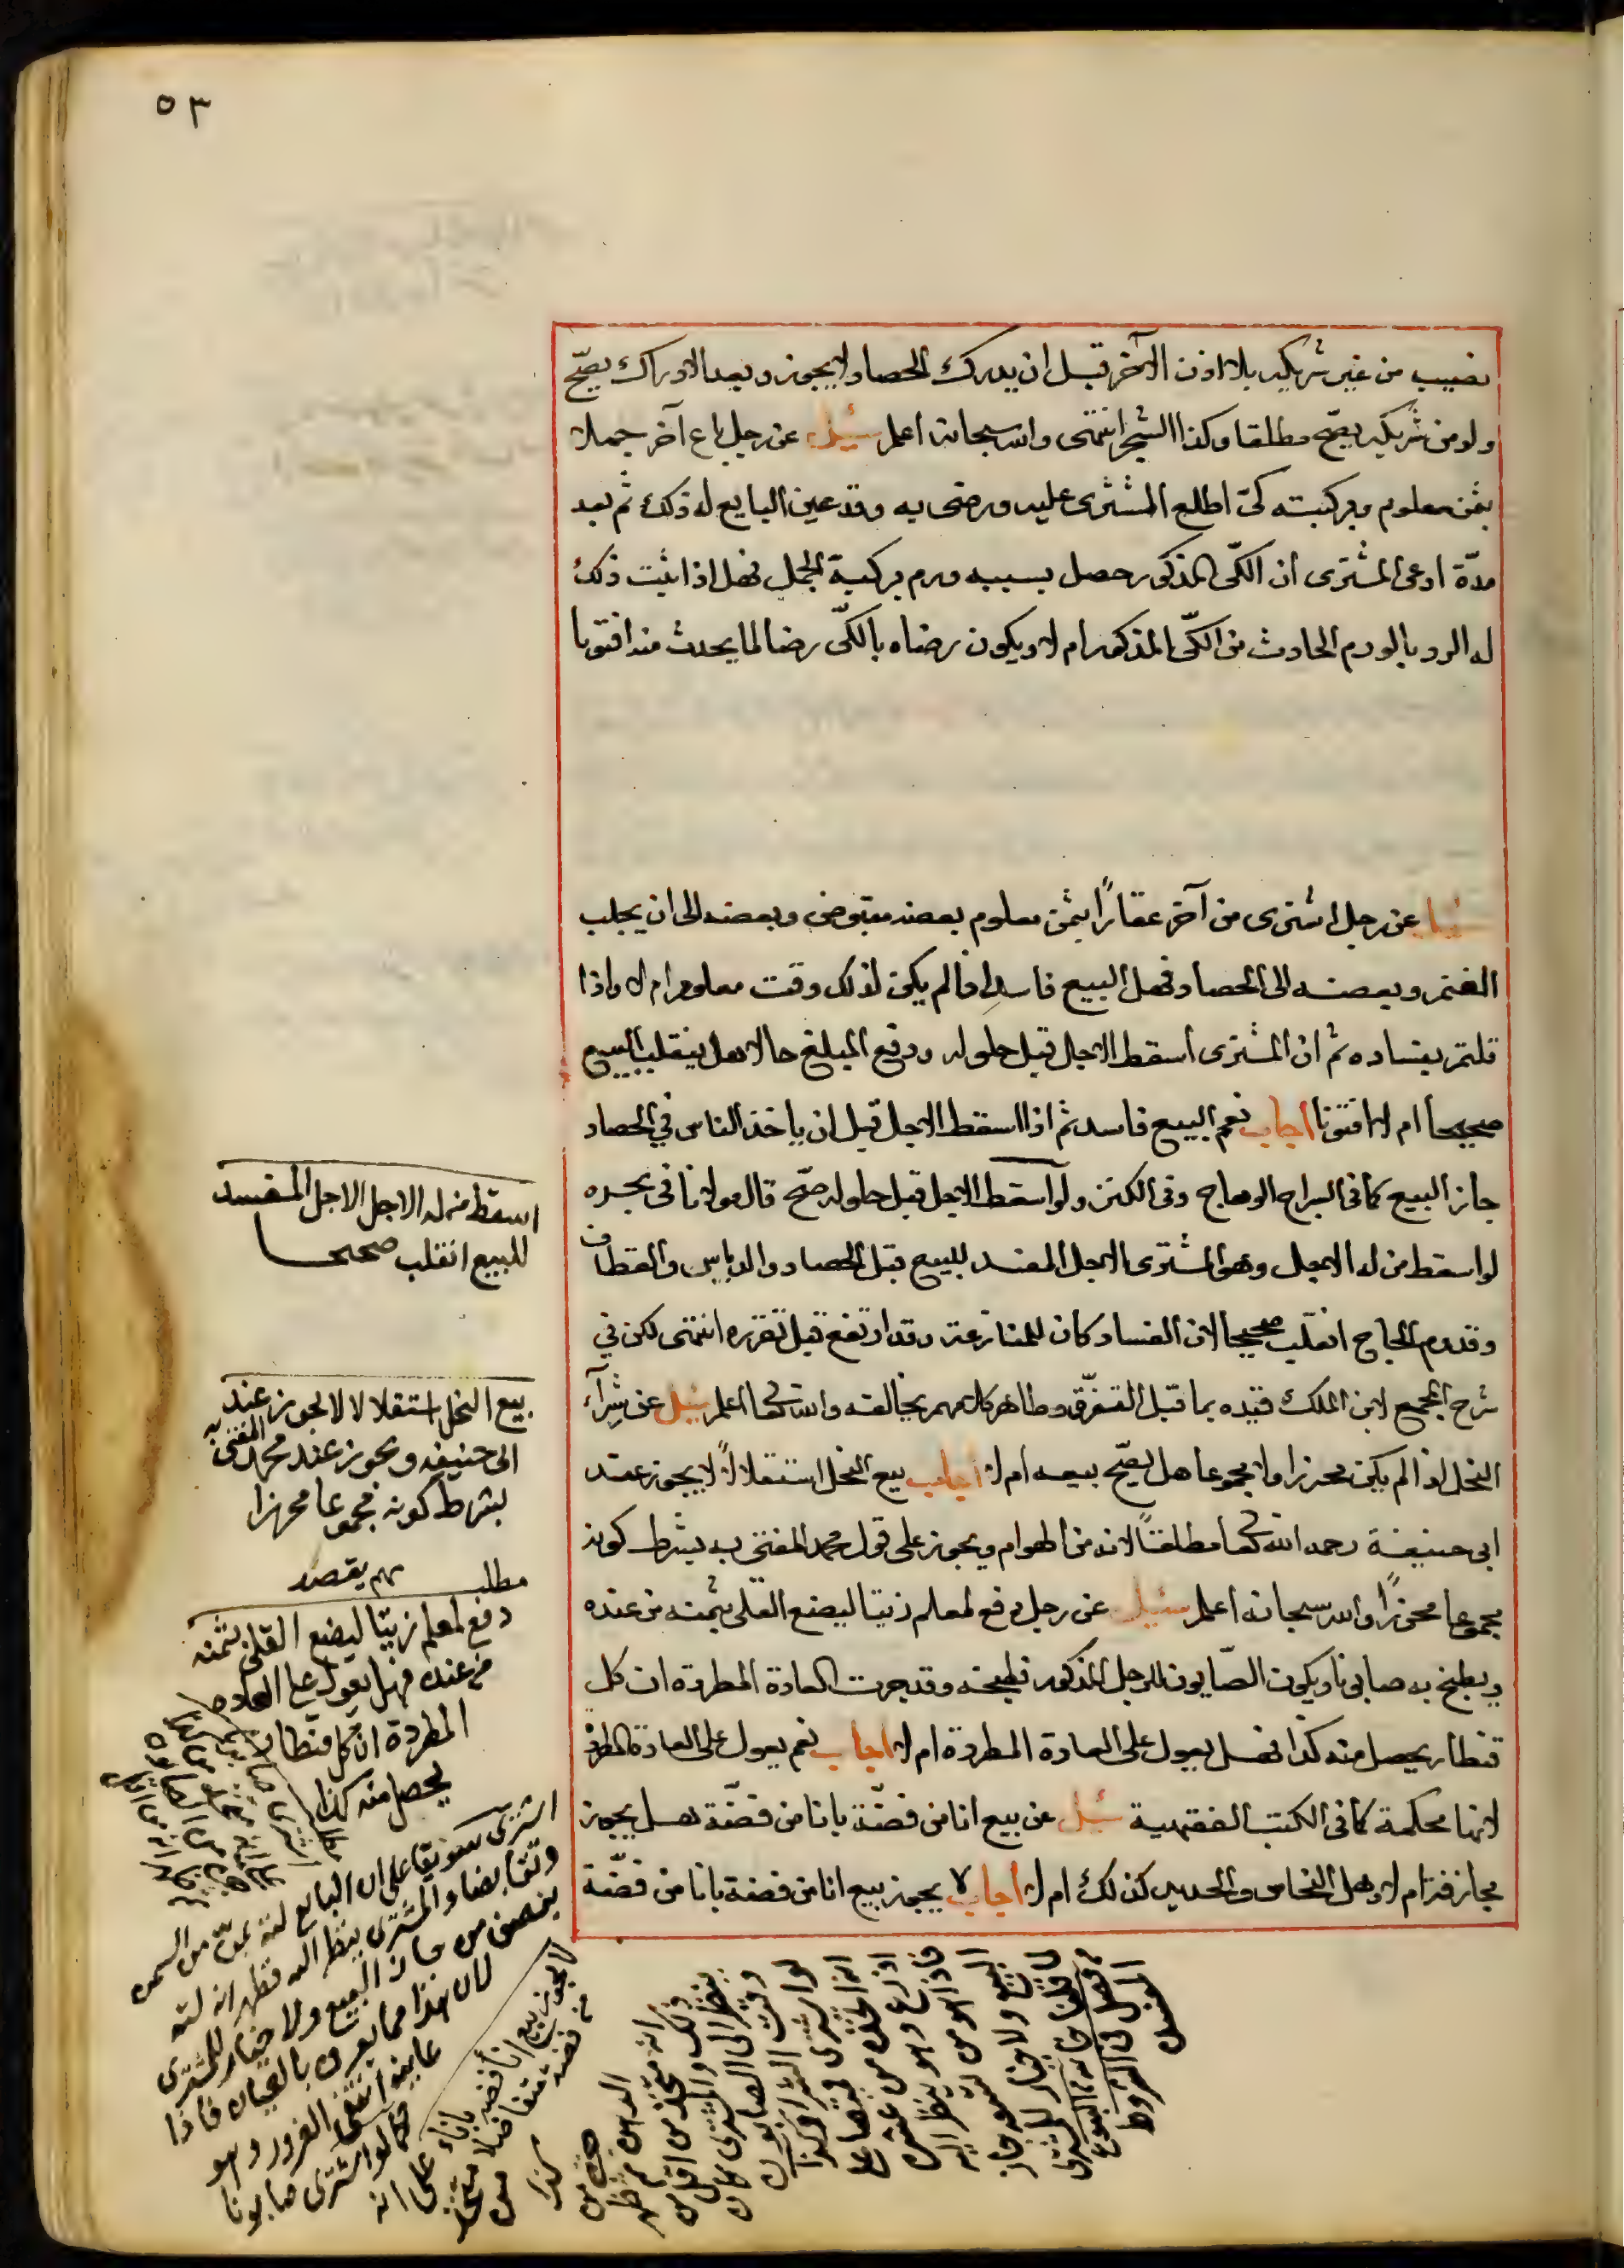 ٥٣
نصيب من غير شريكه بلا اذن الآخر قبل ان يدرك الحصاد لا يجوز وبعد الادراك يصحّ
ولو من شريكه يصحّ مطلقا وكذا الشجر انتهى والله سبحانه اعلم سئل عن رجل باع آخر جملا
بثمن معلوم وبركبته كىّ اطلع المشترى عليه ورضى به وقد عين البايع له ذلك ثم بعد
مدّة ادعى المشترى ان الكىّ المذكور حصل بسببه ورم بركبة الجمل فهل اذا ثبت ذلك
له الرد بالورم الحادث من الكىّ المذكور ام لا ويكون رضاه بالكىّ رضا لما يحدث منه افتونا
سئل عن رجل اشترى من آخر عقارًا بثمن معلوم بعضه مقبوض وبعضه الى ان يجلب
الغنم وبعضه الى الحصاد فهل البيع فاسد اذا لم يكن لذلك وقت معلوم ام لا واذا
قلتم بفساده ثم ان المشترى اسقط الاجال قبل حلوله ودفع المبلغ حالا هل ينقلب البيع
صحيحا ام لا افتونا اجاب نعم البيع فاسد ثم اذا اسقط الاجل قبل ان ياخذ الناس في الحصاد
جاز البيع كما فى السراج الوهاج وفى الكنز ولو اسقط الاجل قبل حلوله صحّ قال مولانا فى بحره
لو اسقط من له الاجل وهو المشترى الاجل المفسد للبيع قبل الحصاد والدياس والقطاف
وقدوم الحاج انقلب صحيحا لان الفساد كان للمنازعة وقد ارتفع قبل تقرره انتهى لكن في
شرح المجمع لابن الملك قيده بما قبل التفرّق وظاهر كلامهم يخالفه والله تعالى اعلم سئل عن شِرآء
النحل اذا لم يكن محرزا ولا مجموعا هل يصّح بيعه ام لا اجاب بيع النحل استقلالاً لا يجوز عند
ابى حنيفة رحمه الله تعالى مطلقاً لانه من الهوام ويجوز على قول محمد المفتى به بشرط كونه
مجموعا محرزًا والله سبحانه اعلم سئل عن رجل دفع لمعلم زيتا ليصنع القلى بثمنه من عنده
ويطبخ به صابونا ويكون الصّابون للرجل المذكور فطبخه وقد جرت العادة المطردة ان كل
قنطار يحصل منه كذا فهل يعول على العادة المطردة ام لا اجاب نعم يعول على العادة المطردة
لانها محكمة كما فى الكتب الفقهية سئل عن بيع انا من فضّة بانا من فضّة هل يجوز
مجازفة ام لا وهل النحاس والحديد كذلك ام لا اجاب لا يجوز بيع انا من فضة بانا من فضّة
اسقط من له الاجل الاجل المفسد
للبيع انقلب صحيحا
بيع النحل استقلالا لا يجوز عند
ابى حنيفه ويجوز عند محمد المفتى به
بشرط كونه مجموعا محرزا
مطلب مهم
دفع لمعلم زيتا ليضع القلى بثمنه
من عنده فهل يعول على العاده
المطردة ان كل قنطار
يحصل منه كذا
اشترى سويقا على ان البايع لته بمنّ من السمن
وتقابضا والمشترى ينظر اليه فظهر انه لته
بنصف من جاز البيع ولا خيار للمشترى
لان هذا مما يعرف بالعيان فاذا
عاينه انتفى الغرور وهو
كما لو اشترى صابونا
على انه متخذ من كذا
لا يجوز بيع انا فضه باناء
من فضه متفاضلا
ينظر الى الصابون
وقت الشرا وكذا
لو اشترى قميصا على
انه اتخذ من عشرة
اذرع وهو ينظر اليه
فاذا هو من تسعة جاز
البيع ولا خيار للمشترى